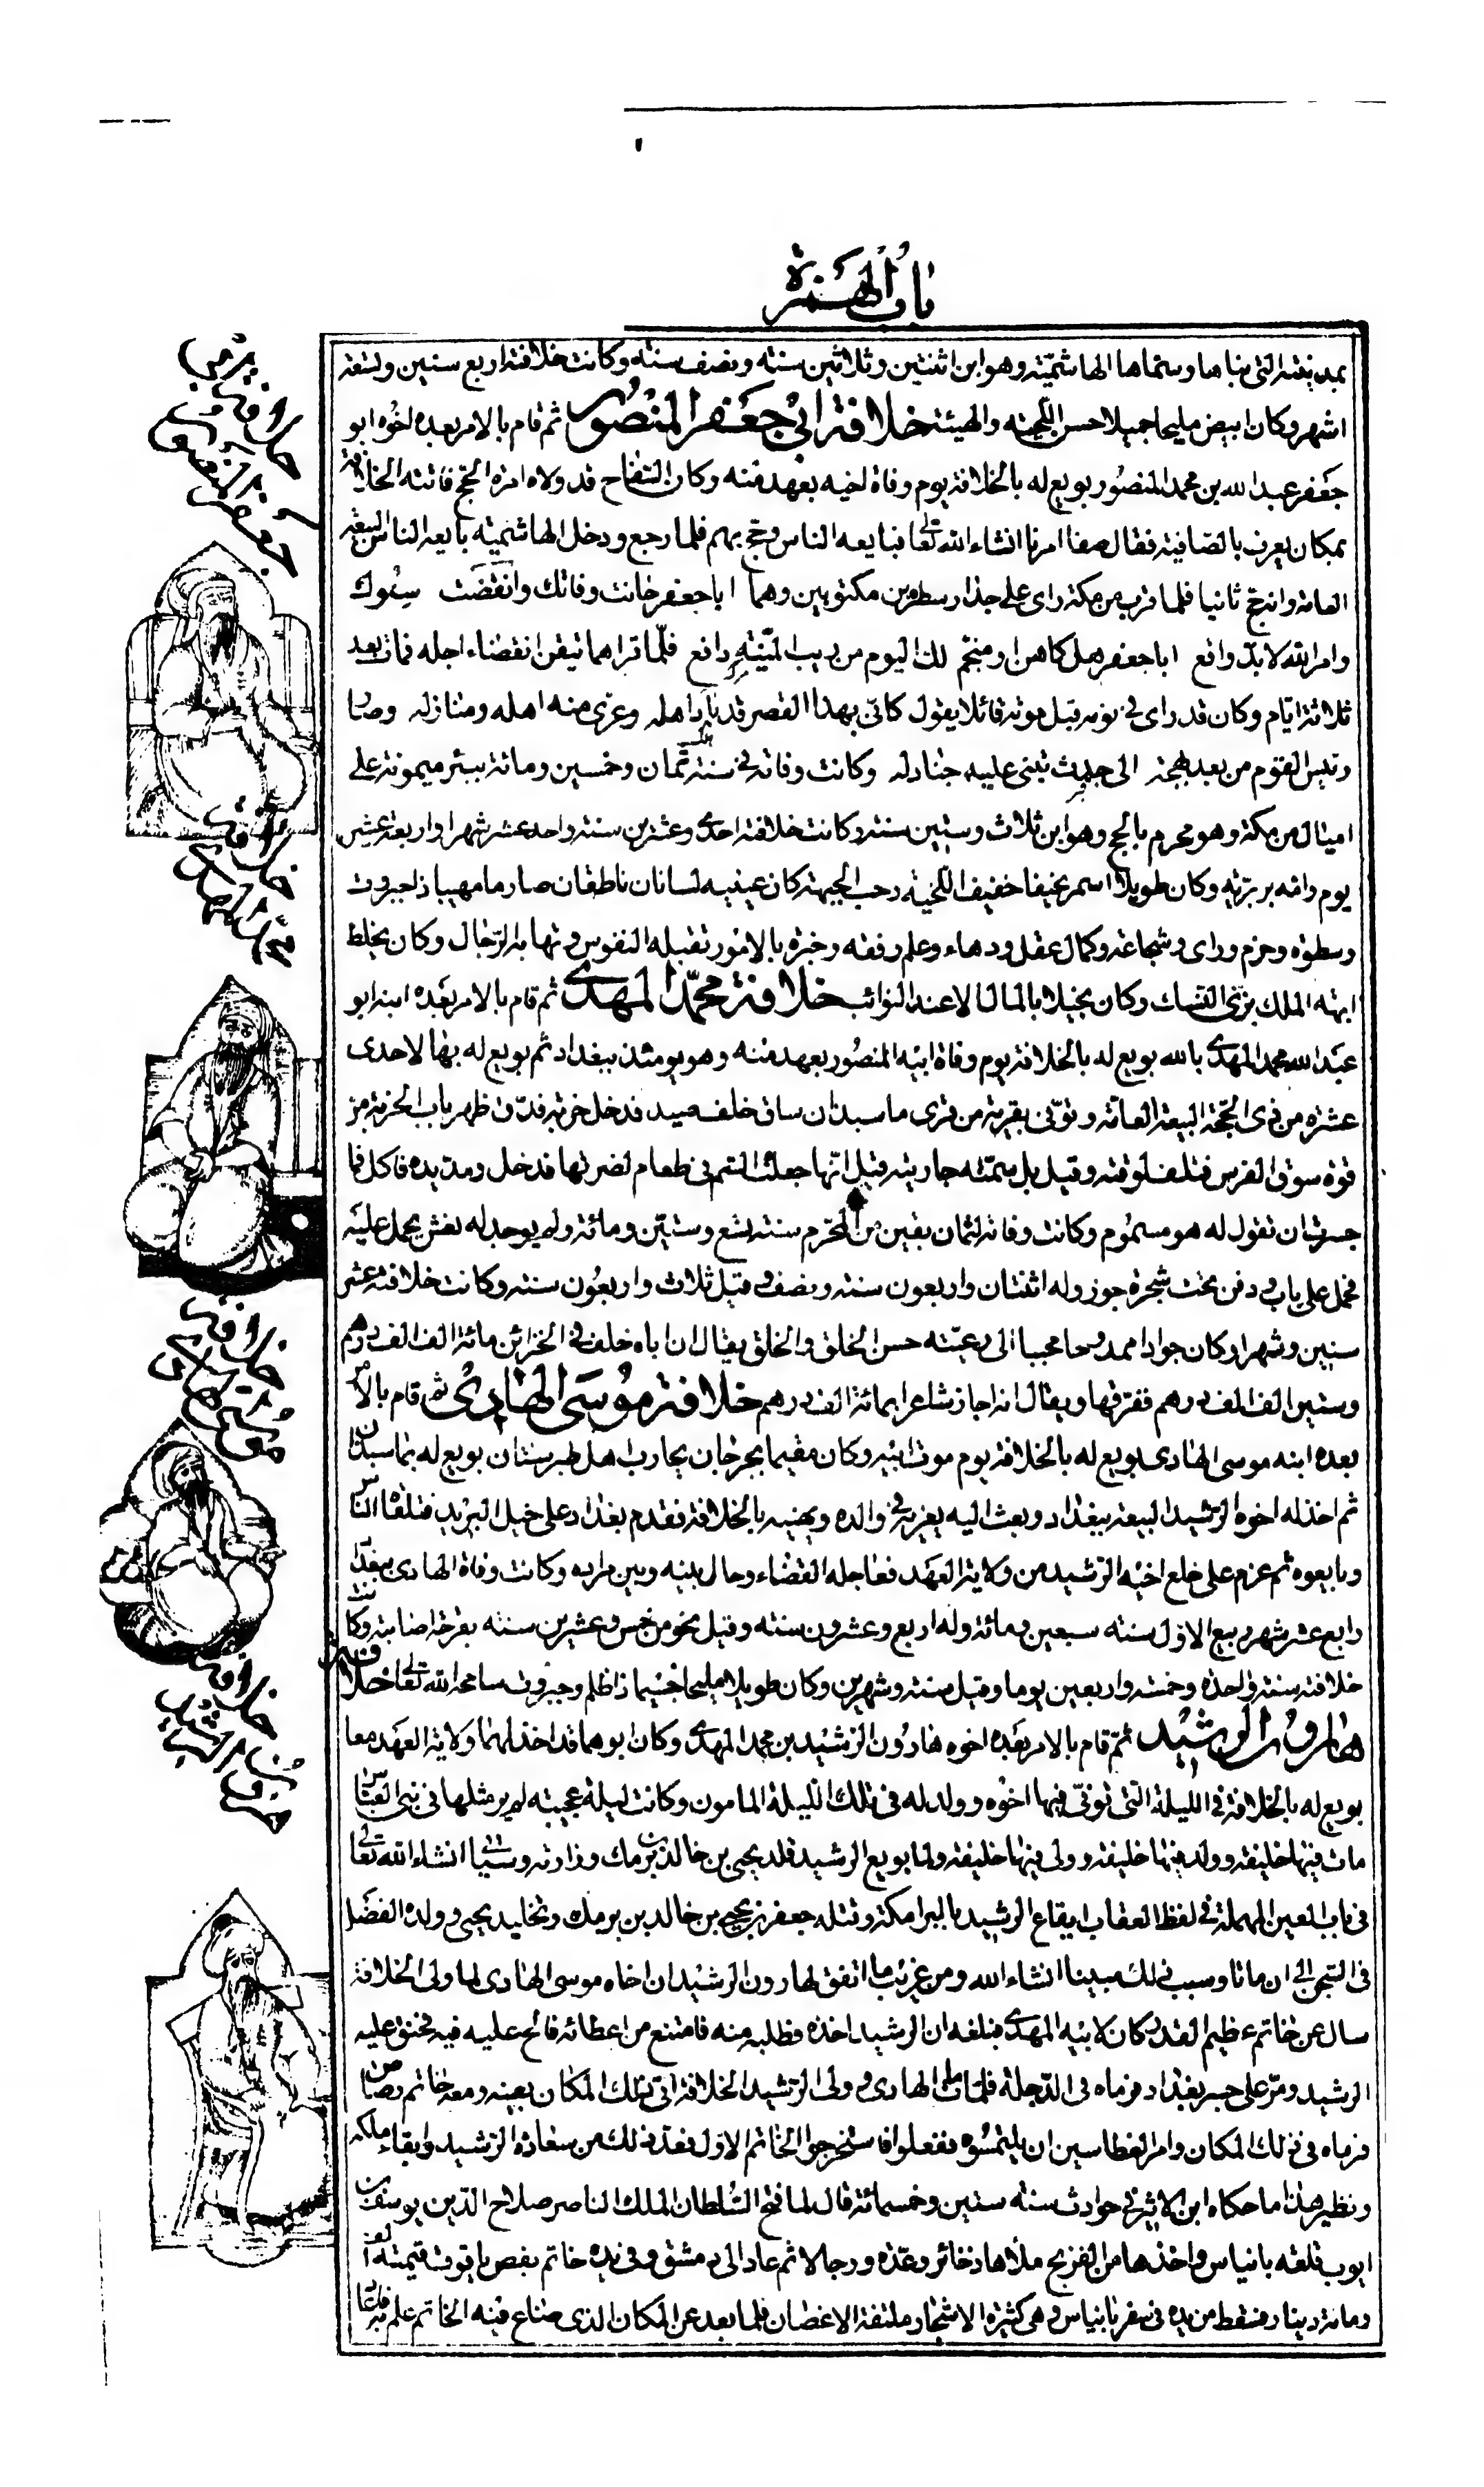 باب الهمزة
بمدينته التى بناها وسماها الهاشميّة وهو ابن اثنتين وثلاثين سنة ونصف سنة وكانت خلافته اربع سنين وتسعة
اشهر وكان ابيض مليحا جميلا حسن اللحية والهيئة خلافة ابى جعفر المنصور ثم قام بالامر بعده اخوه ابو
جعفر عبد الله بن محمد المنصور بويع له بالخلافة يوم وفاة اخيه بعهد منه وكان السفاح قد ولاه امرة الحج فاتته الخلافة
بمكان يعرف بالصافية فقال صفا امرنا انشاء الله تعالى فبايعه الناس وحج بهم فلما رجع ودخل الهاشمية بايعه الناس البيعة
العامة وانه حج ثانيا فلما قرب من مكة راى على جدار سطرين مكتوبين وهما ابا جعفر حانت وفاتك وانقضت سنوك
وامر الله لا بد واقع ابا جعفر هل كاهن او منجم لك اليوم من ريب المنية دافع فلما قراهما تيقن انقضاء اجله فمات بعد
ثلاثة ايام وكان قد راى فى نومه قبل موته قائلا يقول كانى بهذا القصر قد باد اهله وعرى منه اهله ومنازله وصار
رئيس القوم من بعد بهجة الى جدث تبنى عليه جنادله وكانت وفاته فى سنة ثمان وخمسين ومائة ببئر ميمونة على
اميال من مكة وهو محرم بالحج وهو ابن ثلاث وستين سنة وكانت خلافته احدى وعشرين سنة واحد عشر شهرا واربعة عشر
يوم وامه بربرية وكان طويلا اسمر نحيفا خفيف اللحية رحب الجبهة كان عينيه لسانان ناطقان صارما مهيبا ذا جبروت
وسطوة وحزم وراى وشجاعة وكمال عقل ودهاء وعلم وفقه وخبرة بالامور تقبله النفوس وتهابه الرجال وكان يخلط
ابهة الملك بزى النساك وكان بخيلا بالمال الا عند النوائب خلافة محمد المهدى ثم قام بالامر بعده ابنه ابو
عبد الله محمد المهدى بالله بويع له بالخلافة يوم وفاة ابيه المنصور بعهد منه وهو يومئذ ببغداد ثم بويع له بها لاحدى
عشرة من ذى الحجة البيعة العامة وتوفى بقرية من قرى ماسبدان ساق خلف صيد فدخل خربة فدق ظهره باب الخربة من
قوة سوق الفرس فتلف لوقته وقيل بل سمته جاريته قيل انها جعلت السم فى طعام لضرتها فدخل ومد يده فاكل فما
جسرت ان تقول له هو مسموم وكانت وفاته لثمان بقين من المحرم سنة تسع وستين ومائة ولم يوجد له نعش يحمل عليه
فحمل على باب ودفن تحت شجرة جوز وله اثنتان واربعون سنة ونصف وقيل ثلاث واربعون سنة وكانت خلافته عشر
سنين وشهرا وكان جوادا ممدوحا محببا الى رعيته حسن الخلق والخلق يقال ان اباه خلف فى الخزائن مائة الف الف درهم
وستين الف الف درهم ففرقها ويقال انه اجاز شاعرا بمائة الف درهم خلافة موسى الهادى ثم قام بالامر
بعده ابنه موسى الهادى بويع له بالخلافة يوم موت ابيه وكان مقيما بجرجان يحارب اهل طبرستان بويع له بماسبدان
ثم اخذ له اخوه الرشيد البيعة ببغداد وبعث اليه يعزيه فى والده ويهنيه بالخلافة فقدم بغداد على خيل البريد فتلقاه الناس
وبايعوه ثم عزم على خلع اخيه الرشيد من ولاية العهد فعاجله القضاء وحال بينه وبين مراده وكانت وفاة الهادى ببغداد
رابع عشر شهر ربيع الاول سنة سبعين ومائة وله اربع وعشرون سنة وقيل نحو من خمس وعشرين سنة بقرحة اصابته وكانت
خلافته سنة واحدة وخمسة واربعين يوما وقيل سنة وشهرين وكان طويلا مليحا جسيما ذا ظلم وجبروت سامحه الله تعالى خلافة
هارون الرشيد ثم قام بالامر بعده اخوه هارون الرشيد بن محمد المهدى وكان ابوهما قد اخذ لهما ولاية العهد معا
بويع له بالخلافة فى الليلة التى توفى فيها اخوه وولد له فى تلك الليلة المامون وكانت ليلة عجيبة لم ير مثلها فى بنى العباس
مات فيها خليفة وولد فيها خليفة وولى فيها خليفة ولما بويع الرشيد قلد يحيى بن خالد بن برمك وزارته وسياتى انشاء الله تعالى
فى باب العين المهملة فى لفظ العقاب ايقاع الرشيد بالبرامكة وقتله جعفر بن يحيى بن خالد بن برمك وتخليد يحيى وولده الفضل
فى السجن الى ان ماتا وسبب ذلك مبينا انشاء الله ومن غريب ما اتفق لهارون الرشيد ان اخاه موسى الهادى لما ولى الخلافة
سال عن خاتم عظيم القدر كان لابيه المهدى فبلغه ان الرشيد اخذه فطلبه منه فامتنع من اعطائه فالح عليه فيه فحنق عليه
الرشيد ومر على جسر بغداد فرماه فى الدجلة فلما مات الهادى وولى الرشيد الخلافة اتى ذلك المكان بعينه ومعه خاتم رصاص
فرماه فى ذلك المكان وامر الغطاسين ان يلتمسوه ففعلوا فاستخرجوا الخاتم الاول فعد ذلك من سعادة الرشيد وابقاء ملكه
ونظير هذا ما حكاه ابن الاثير فى حوادث سنة ستين وخمسمائة قال لما فتح السلطان الملك الناصر صلاح الدين يوسف بن
ايوب قلعة بانياس واخذها من الفرنج ملاها ذخائر وعدة ورجالا ثم عاد الى دمشق وفى يده خاتم بفص ياقوت قيمته الف
ومائة دينار فسقط من يده فى سعر بانياس وهى كثيرة الاشجار ملتفة الاغصان فلما بعد عن المكان الذى ضاع فيه الخاتم علم به فلقا
خلافة
جعفر المنصور
خلافة
محمد المهدى
خلافة
موسى هادى
خلافة
هرون الرشيد